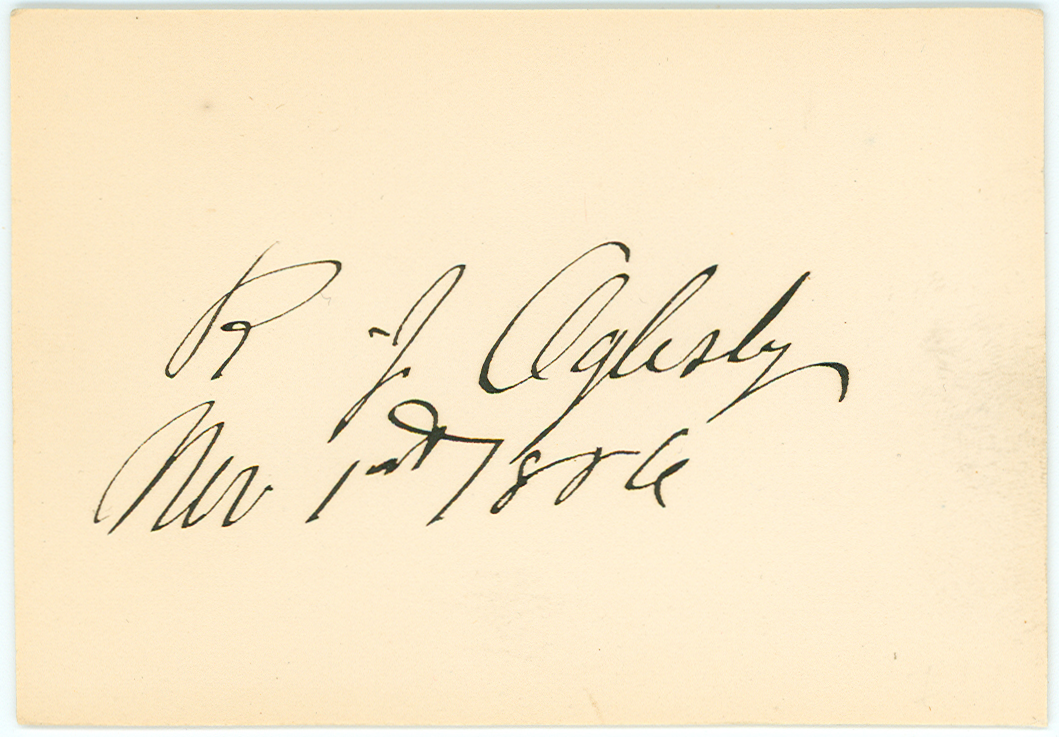 R J Oglesby
Nov 1st 1886